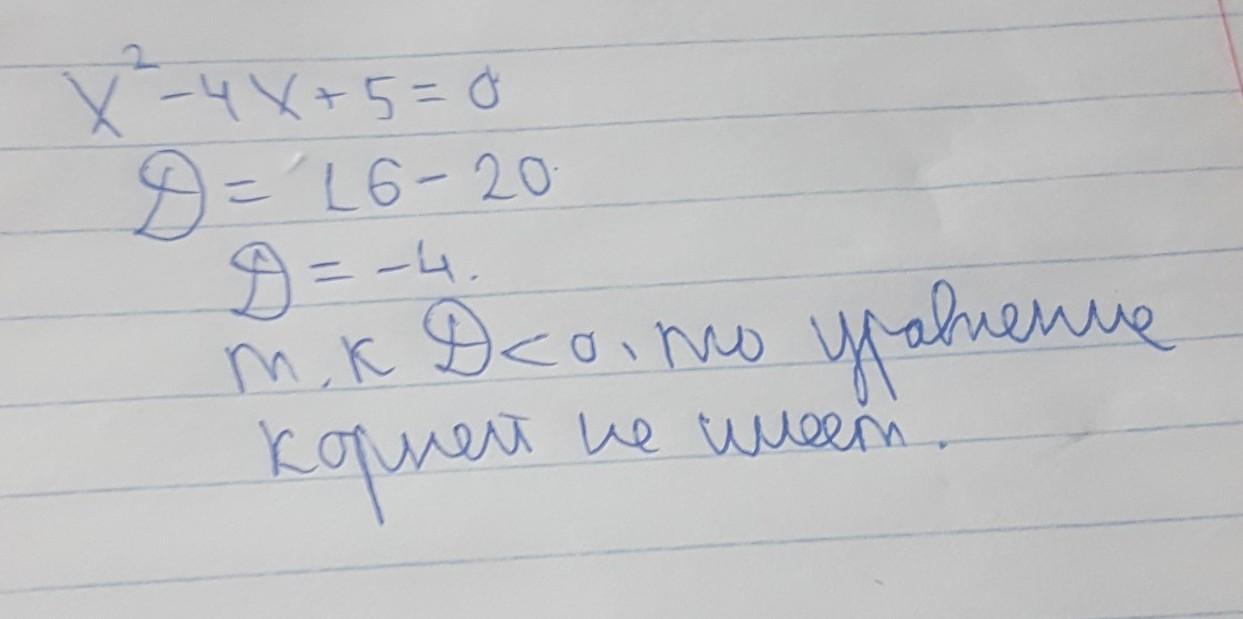 x² - 4x + 5 = 0
D = 16 - 20
D = -4.
т.к D < 0, то уравнение
корней не имеет.